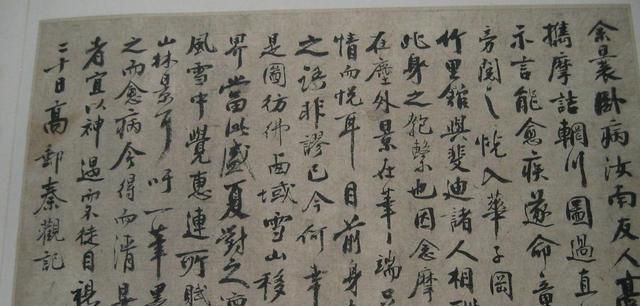 余曩卧病汝南友人高
攜摩詰輞川圖過直
示言能愈疾遂命童
旁閱之恍入華子岡
竹里館與斐迪諸人相
此身之匏繫也因念摩
在塵外景在筆端
情而悅耳目前身
之語非謬已今何幸
是圖彷彿西域雪山移
界當此盛夏對之凜
風雪中覺惠連所賦
山林景耳吁一筆墨
之而愈病今得而清暑
者宜以神遇而不徒目視
二十日高郵秦觀記